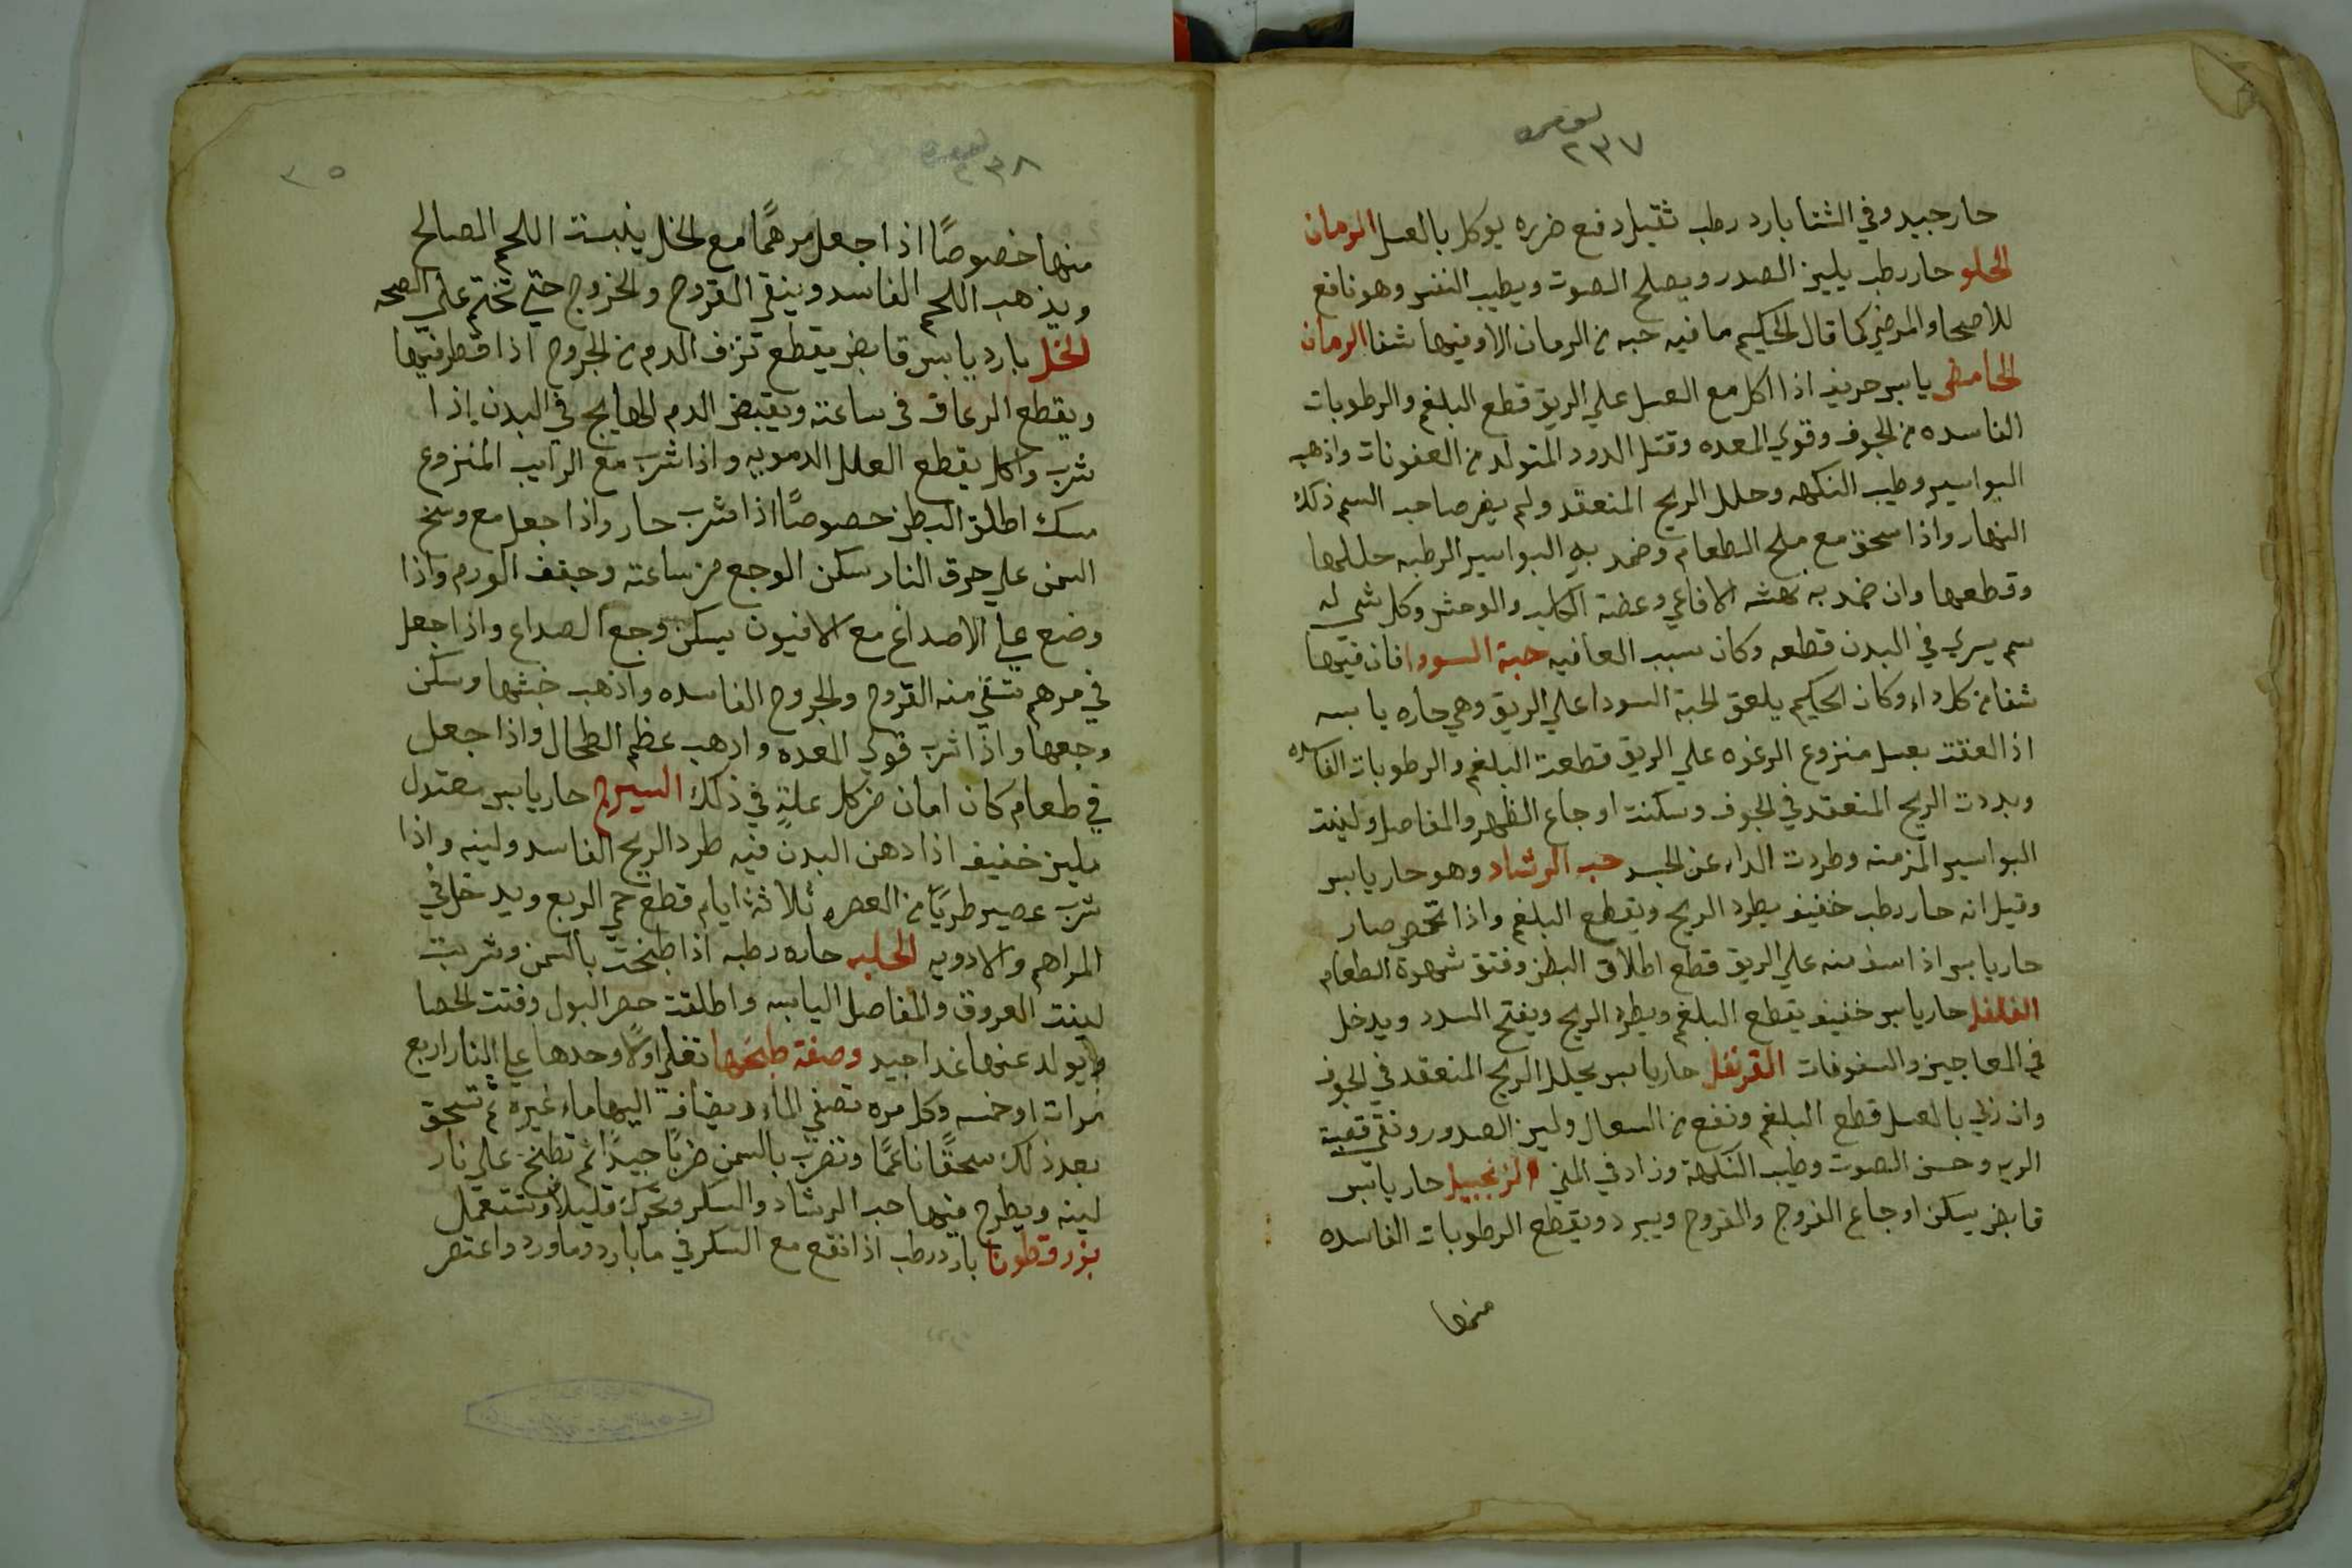 ٢٣٧
حار جيد وفي الشتا بارد رطب ثقيل دفع ضرره يوكل بالعسل الرمان
الحلو حار رطب يلين الصدر ويصلح الصوت ويطيب النفس وهو نافع
للاصحا والمرضي كما قال الحكيم ما فيه حبه من الرمان الا وفيها شفا الرمان
الحامض يابس حريف اذا اكل مع العسل علي الريق قطع البلغم والرطوبات
الفاسده من الجوف وقوي المعده وقتل الدود المتولد من العفونات واذهب
البواسير وطيب النكهه وحلل الريح المنعقد ولم يضر صاحب السم ذلك
النهار واذا سحق مع ملح الطعام وضمد به البواسير الرطبه حللها
وقطعها وان ضمد به نهشه الافاعي وعضة الكلب والوحش وكل شي له
سم يسري في البدن قطعه وكان سبب العافيه حبة السودا فان فيها
شفا من كل داء وكان الحكيم يلعق الحبة السودا علي الريق وهي حاره يابسه
اذا لعقت بعسل منزوع الرغوه علي الريق قطعت البلغم والرطوبات الفاسده
وبددت الريح المنعقد في الجوف وسكنت اوجاع الظهر والمفاصل ولينت
البواسير المزمنه وطردت الداء عن الجسد حب الرشاد وهو حار يابس
وقيل انه حار رطب خفيف يطرد الريح ويقطع البلغم واذا تحمص صار
حار يابس اذا اسف منه علي الريق قطع اطلاق البطن وفتق شهوة الطعام
الفلفل حار يابس خفيف يقطع البلغم ويطرد الريح ويفتح السدد ويدخل
في المعاجين والسفوفات القرنفل حار يابس يحلل الريح المنعقد في الجوف
وان ربي بالعسل قطع البلغم ونفع من السعال ولين الصدور ونقي قصبة
الريه وحسن الصوت وطيب النكهة وزاد في المني الزنجبيل حار يابس
قابض يسكن اوجاع الفروج والقروح ويبرد ويقطع الرطوبات الفاسده
منها
٢٣٨
٣٠٥
منها خصوصًا اذا جعل مرهمًا مع الخل ينبت اللحم الصالح
ويذهب اللحم الفاسد وينقي القروح والخروج حتي تختم علي الصحه
الخل بارد يابس قابض يقطع نزف الدم من الجروح اذا قطر فيها
ويقطع الرعاف في ساعته ويقبض الدم الهايج في البدن اذا
شرب واكل يقطع العلل الدمويه واذا شرب مع الرايب المنزوع
مسك اطلاق البطن خصوصًا اذا شرب حار واذا جعل مع وسخ
السمن علي حرق النار سكن الوجع من ساعته وجفف الورم واذا
وضع علي الاصداغ مع الافيون يسكن وجع الصداع واذا جعل
في مرهم تنقي منه القروح والجروح الفاسده واذهب خبثها وسكن
وجعها واذا شرب قوي المعده واذهب عظم الطحال واذا جعل
في طعام كان امان من كل علةٍ في ذلك السيرج حار يابس معتدل
ملين خفيف اذا دهن البدن فيه طرد الريح الفاسد ولينه واذا
شرب عصير طريًا من العصره ثلاثة ايام قطع حمي الربع ويدخل في
المراهم والادويه الحلبه حاره رطبه اذا طبخت بالسمن وشربت
لينت العروق والمفاصل اليابسه واطلقت حصر البول وفتت الحصا
ويولد عنها غدا جيد وصفة طبخها تغلي اولًا وحدها علي النار اربع
مرات او خمسه وكل مره تصفي الماء ويضاف اليها ماء غيره ثم تسحق
بعد ذلك سحقًا ناعمًا وتضرب بالسمن ضربًا جيدًا ثم تطبخ علي نار
لينه ويطرح فيها حب الرشاد والسكر وتحرك قليلًا وتستعمل
بزر قطونا بارد رطب اذا نقع مع السكر في ما بارد وماورد واعتصر